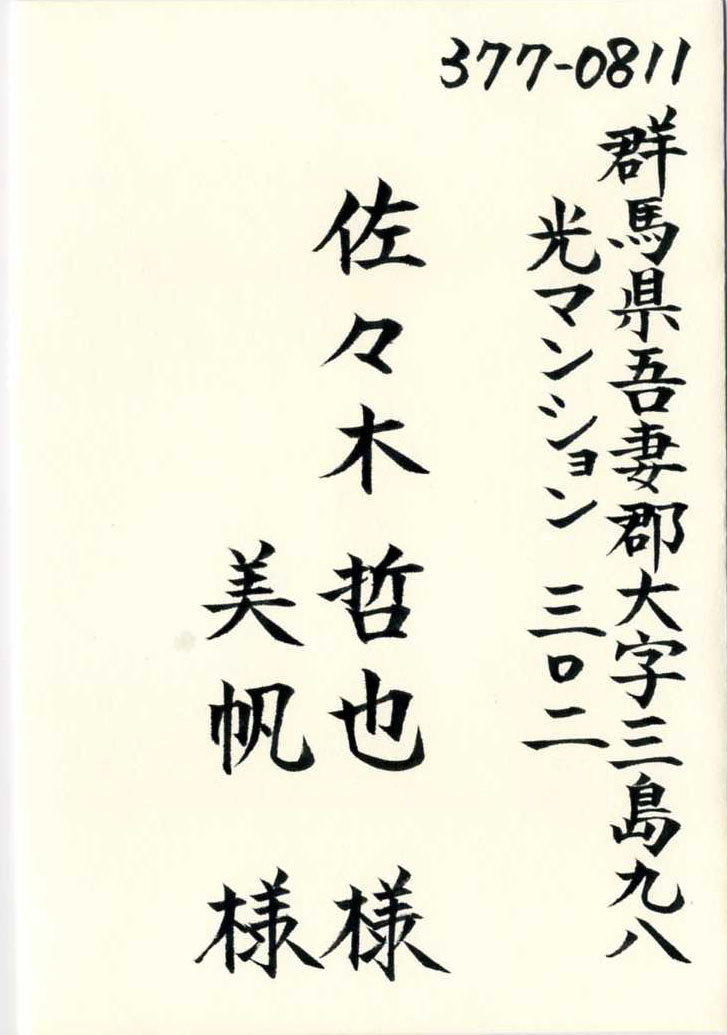 377-0811
群馬県吾妻郡大字三島九八
光マンション 三〇二
佐々木 哲也 様
美帆 様